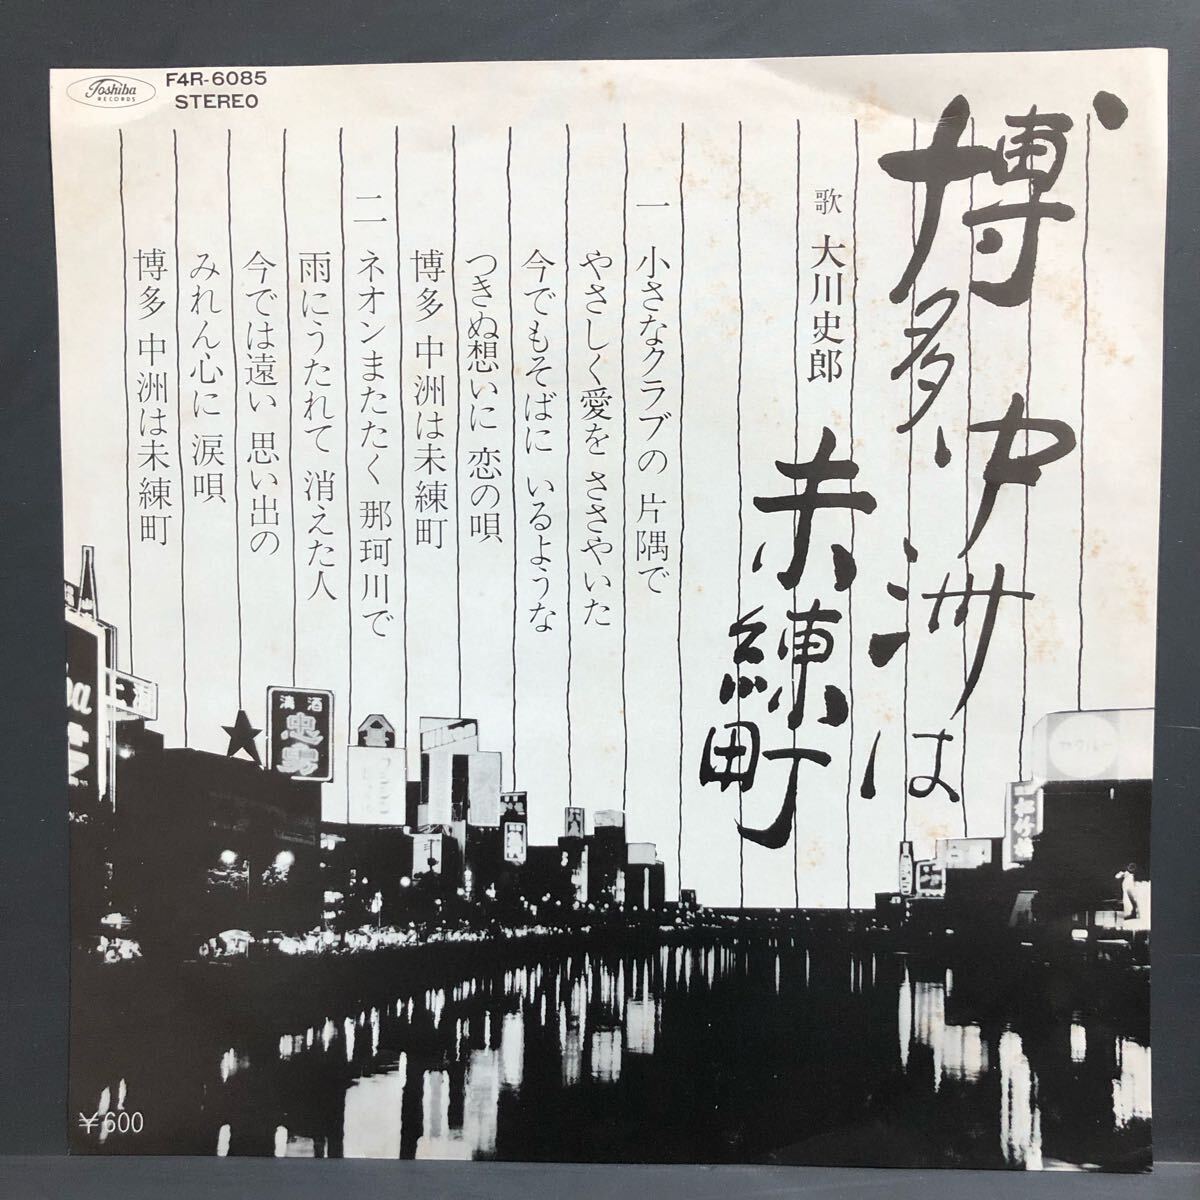 Toshiba
RECORDS
F4R-6085
STEREO
博多中洲は
未練町
歌 大川史郎
一 小さなクラブの 片隅で
やさしく愛を ささやいた
今でもそばに いるような
つきぬ想いに 恋の唄
博多 中洲は未練町
二 ネオンまたたく 那珂川で
雨にうたれて 消えた人
今では遠い 思い出の
みれん心に 涙唄
博多 中洲は未練町
清酒
忠勇
¥600